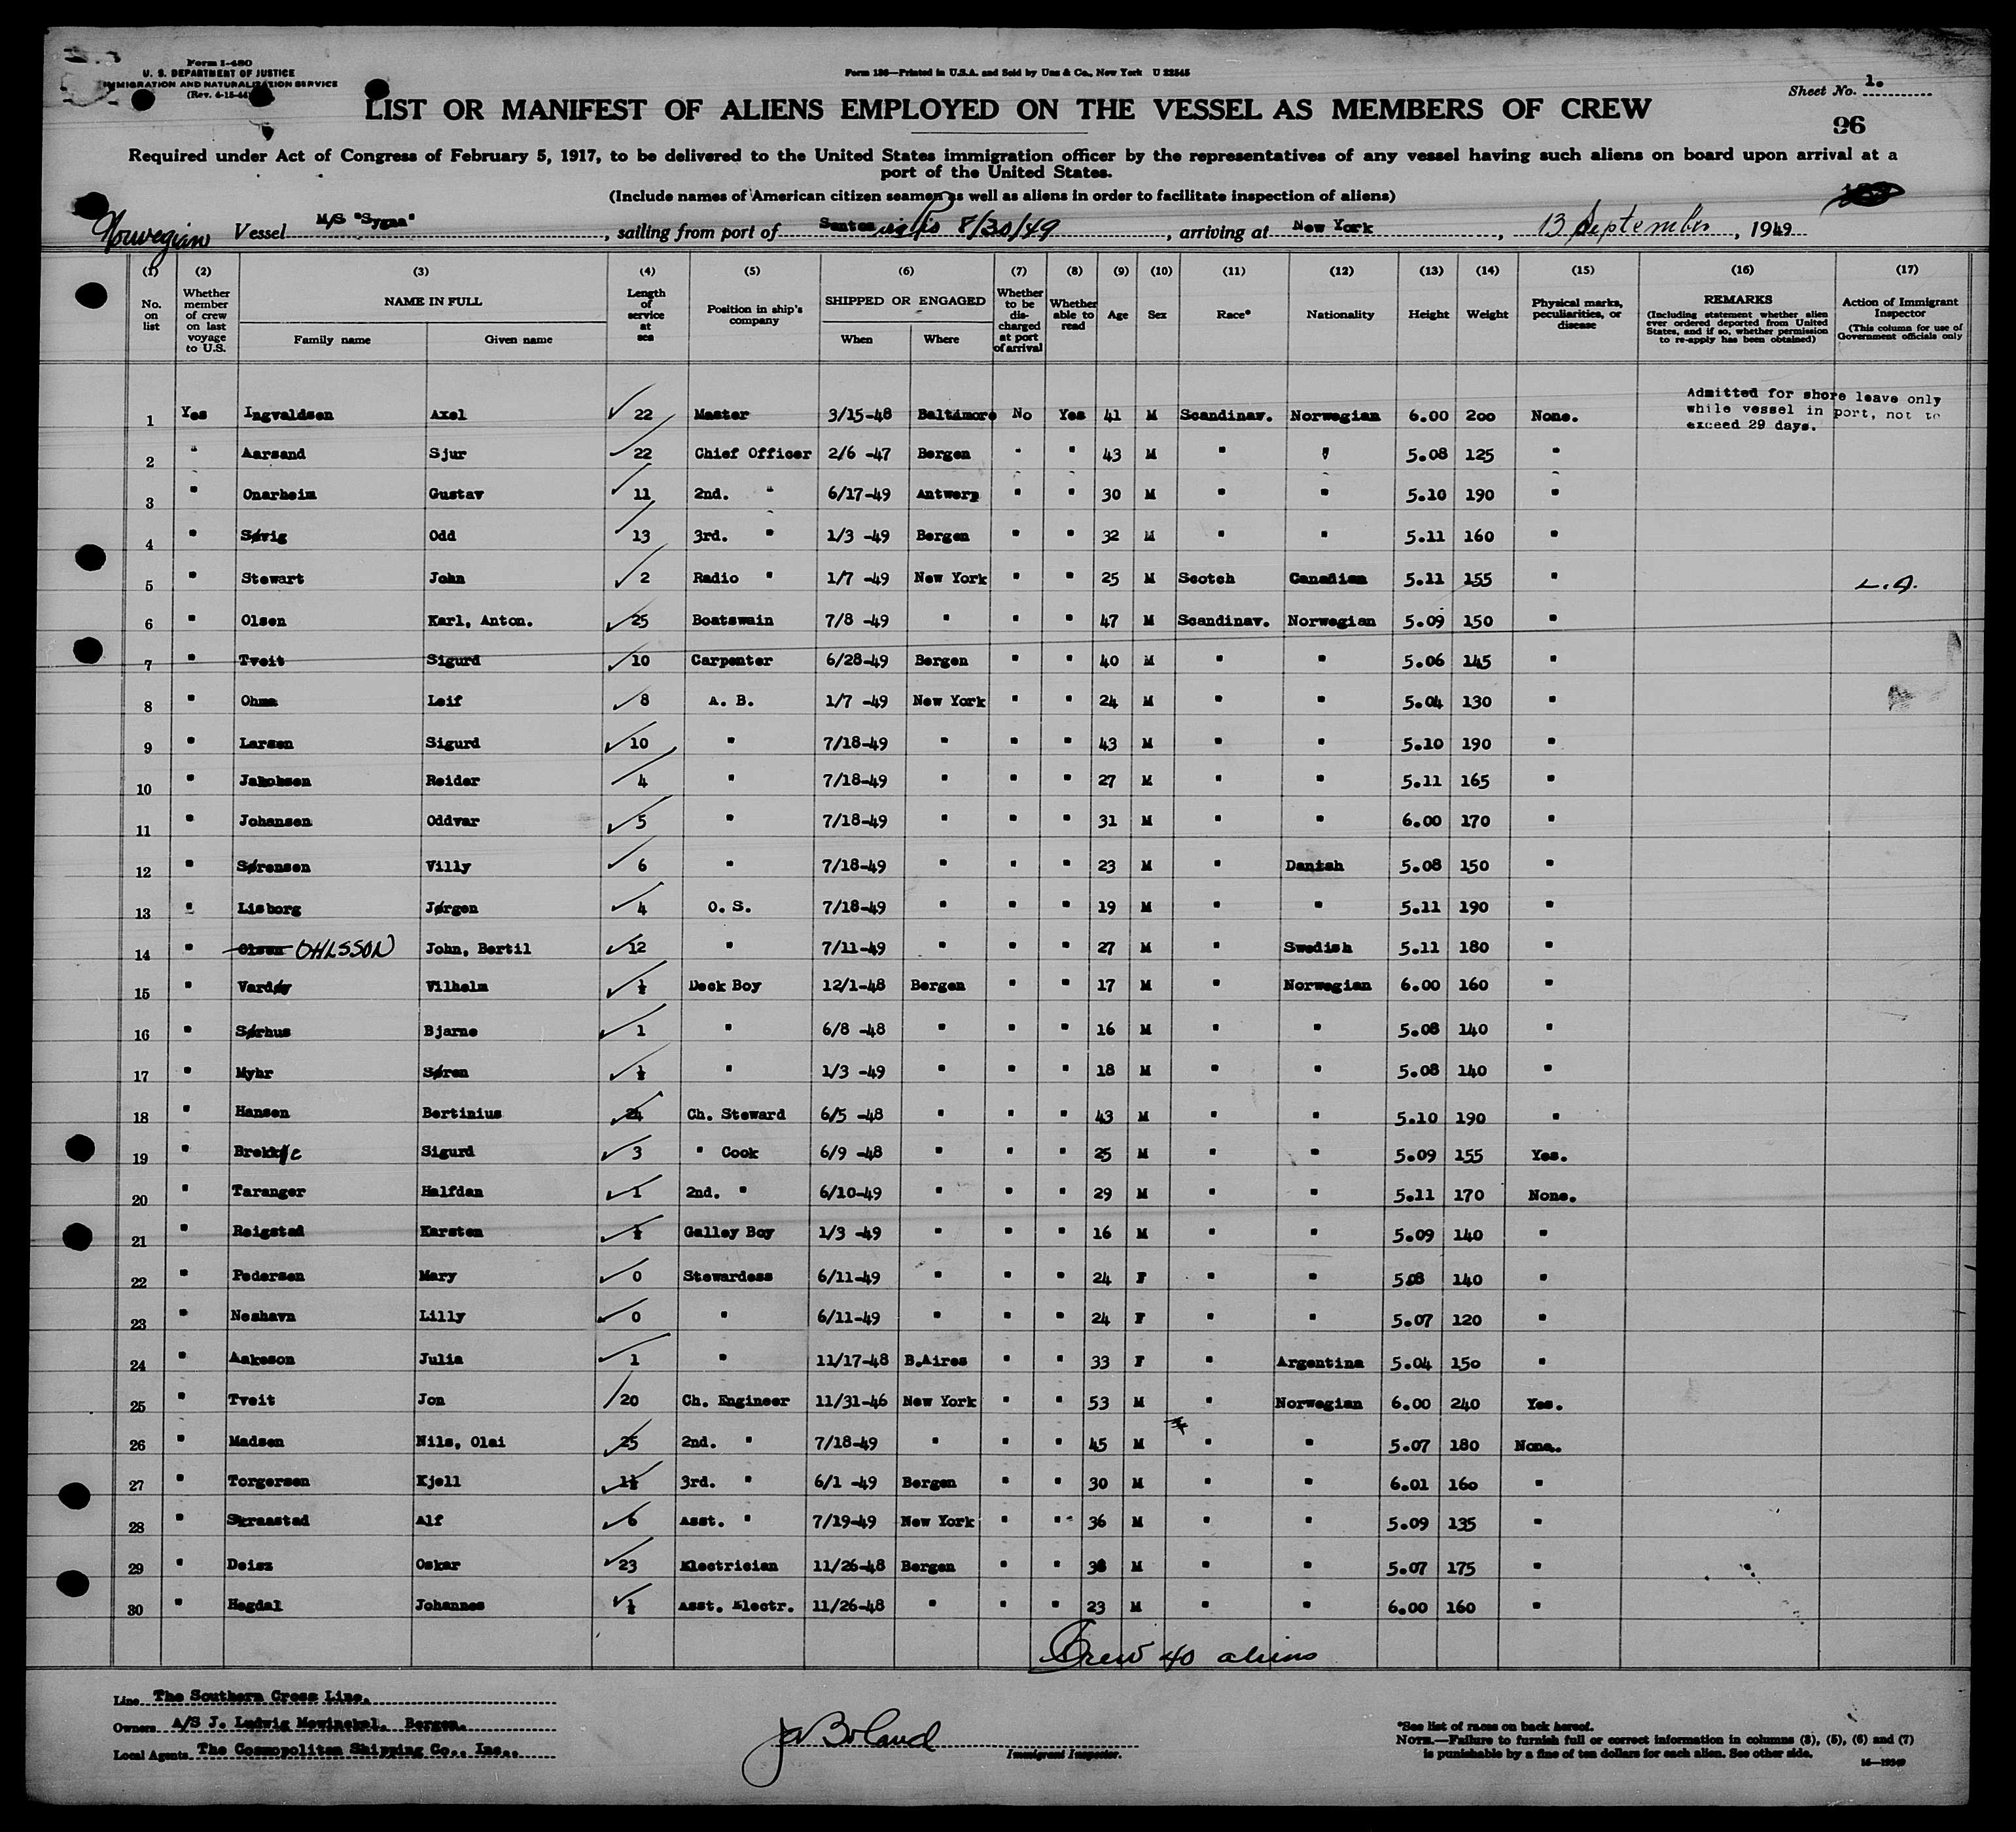 Form I-480
U. S. DEPARTMENT OF JUSTICE
IMMIGRATION AND NATURALIZATION SERVICE
(Rev. 4-15-44)
Form 136—Printed in U.S.A. and Sold by Unz & Co., New York U 22545
Sheet No. 1.
LIST OR MANIFEST OF ALIENS EMPLOYED ON THE VESSEL AS MEMBERS OF CREW
96
Required under Act of Congress of February 5, 1917, to be delivered to the United States immigration officer by the representatives of any vessel having such aliens on board upon arrival at a
port of the United States.
(Include names of American citizen seamen as well as aliens in order to facilitate inspection of aliens)
Norwegian Vessel M/S "Sygna", sailing from port of Santos 8/30/49, arriving at New York, 13 September, 1949
(1) (2) (3) (4) (5) (6) (7) (8) (9) (10) (11) (12) (13) (14) (15) (16) (17)
No. on list
Whether member of crew on last voyage to U.S.
NAME IN FULL
Family name Given name
Length of service at sea
Position in ship's company
SHIPPED OR ENGAGED
When Where
Whether to be discharged at port of arrival
Whether able to read
Age Sex Race* Nationality Height Weight
Physical marks, peculiarities, or disease
REMARKS
(Including statement whether alien ever ordered deported from United States, and if so, whether permission to re-apply has been obtained)
Action of Immigrant Inspector
(This column for use of Government officials only
Admitted for shore leave only
while vessel in port, not to
exceed 29 days.
1 Yes Ingvaldsen Axel 22 Master 3/15-48 Baltimore No Yes 41 M Scandinav. Norwegian 6.00 200 None.
2 " Aarsand Sjur 22 Chief Officer 2/6 -47 Bergen " " 43 M " " 5.08 125 "
3 " Onarheim Gustav 11 2nd. " 6/17-49 Antwerp " " 30 M " " 5.10 190 "
4 " Søvig Odd 13 3rd. " 1/3 -49 Bergen " " 32 M " " 5.11 160 "
5 " Stewart John 2 Radio " 1/7 -49 New York " " 25 M Scotch Canadian 5.11 155 "
6 " Olsen Karl, Anton. 25 Boatswain 7/8 -49 " " " 47 M Scandinav. Norwegian 5.09 150 "
7 " Tveit Sigurd 10 Carpenter 6/28-49 Bergen " " 40 M " " 5.06 145 "
8 " Ohma Leif 8 A. B. 1/7 -49 New York " " 24 M " " 5.04 130 "
9 " Larsen Sigurd 10 " 7/18-49 " " " 43 M " " 5.10 190 "
10 " Jakobsen Reider 4 " 7/18-49 " " " 27 M " " 5.11 165 "
11 " Johansen Oddvar 5 " 7/18-49 " " " 31 M " " 6.00 170 "
12 " Sørensen Villy 6 " 7/18-49 " " " 23 M " Danish 5.08 150 "
13 " Lisborg Jørgen 4 O. S. 7/18-49 " " " 19 M " " 5.11 190 "
14 " Olsen OHLSSON John, Bertil 12 " 7/11-49 " " " 27 M " Swedish 5.11 180 "
15 " Vardøy Vilhelm ½ Deck Boy 12/1-48 Bergen " " 17 M " Norwegian 6.00 160 "
16 " Sørhus Bjarne 1 " 6/8 -48 " " " 16 M " " 5.08 140 "
17 " Myhr Søren ½ " 1/3 -49 " " " 18 M " " 5.08 140 "
18 " Hansen Bertinius 24 Ch. Steward 6/5 -48 " " " 43 M " " 5.10 190 "
19 " Brekke Sigurd 3 " Cook 6/9 -48 " " " 25 M " " 5.09 155 Yes.
20 " Taranger Halfdan 1 2nd. " 6/10-49 " " " 29 M " " 5.11 170 None.
21 " Reigstad Karsten ½ Galley Boy 1/3 -49 " " " 16 M " " 5.09 140 "
22 " Pedersen Mary 0 Stewardess 6/11-49 " " " 24 F " " 5.08 140 "
23 " Neshavn Lilly 0 " 6/11-49 " " " 24 F " " 5.07 120 "
24 " Aakeson Julia 1 " 11/17-48 B.Aires " " 33 F " Argentina 5.04 150 "
25 " Tveit Jon 20 Ch. Engineer 11/31-46 New York " " 53 M " Norwegian 6.00 240 Yes.
26 " Madsen Nils, Olai 25 2nd. " 7/18-49 " " " 45 M " " 5.07 180 None.
27 " Torgersen Kjell 1½ 3rd. " 6/1 -49 Bergen " " 30 M " " 6.01 160 "
28 " Skraastad Alf 6 Asst. " 7/19-49 New York " " 36 M " " 5.09 135 "
29 " Deisz Oskar 23 Electrician 11/26-48 Bergen " " 38 M " " 5.07 175 "
30 " Hegdal Johannes ½ Asst. Electr. 11/26-48 " " " 23 M " " 6.00 160 "
Crew 40 aliens
Line The Southern Cross Line.
Owners A/S J. Ludwig Mowinckel. Bergen.
Local Agents The Cosmopolitan Shipping Co., Inc.
Boland
Immigrant Inspector.
*See list of races on back hereof.
NOTE.—Failure to furnish full or correct information in columns (3), (5), (6) and (7)
is punishable by a fine of ten dollars for each alien. See other side.